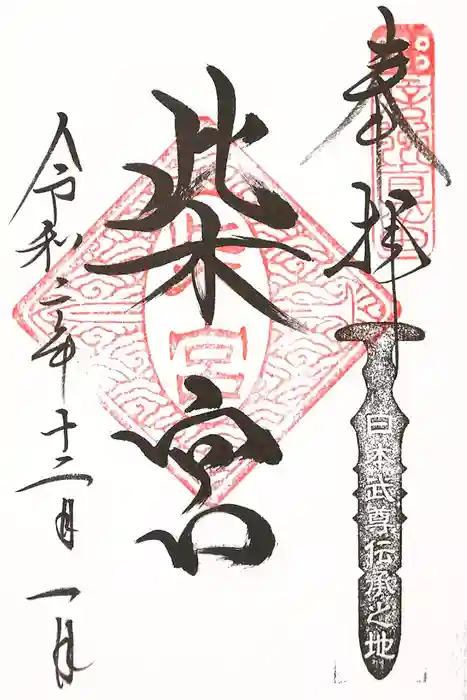 奉拝
日本武尊伝承之地
柴宮
柴宮
令和二年十二月一日